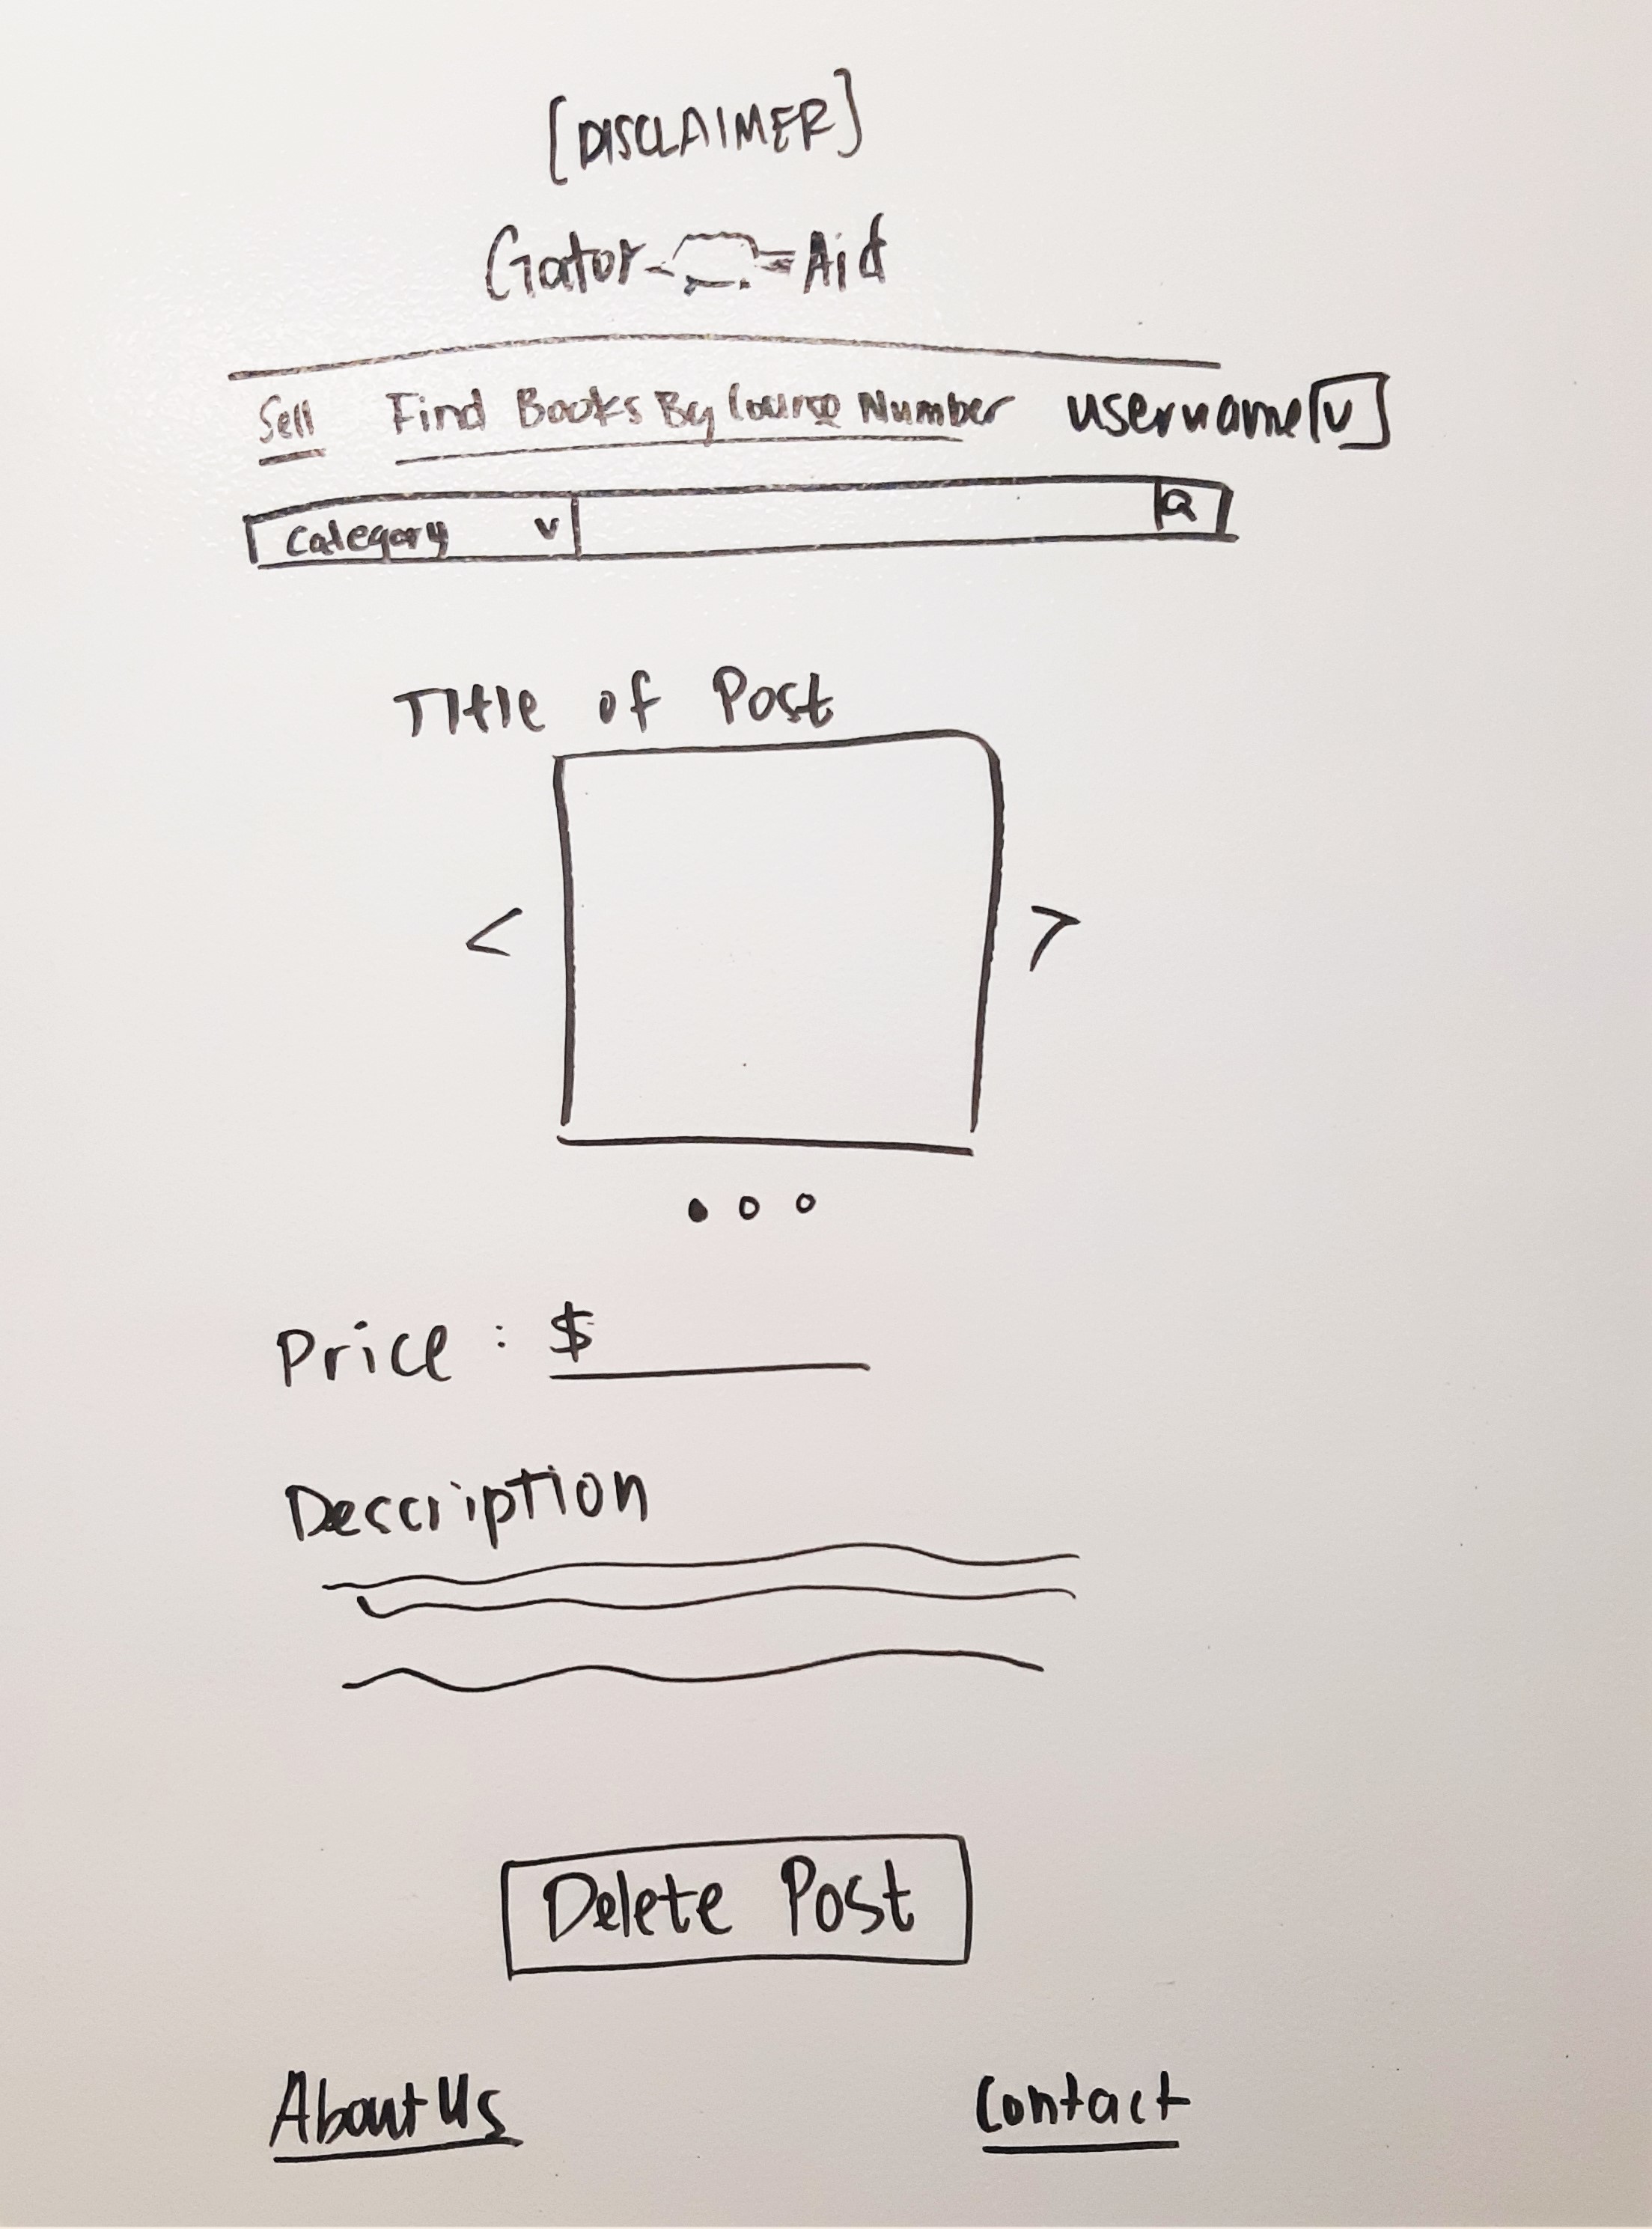 [DISCLAIMER]
Gator Aid
Sell Find Books By Course Number username [v]
Category v Q
Title of Post
< >
Price : $
Description
Delete Post
About Us Contact